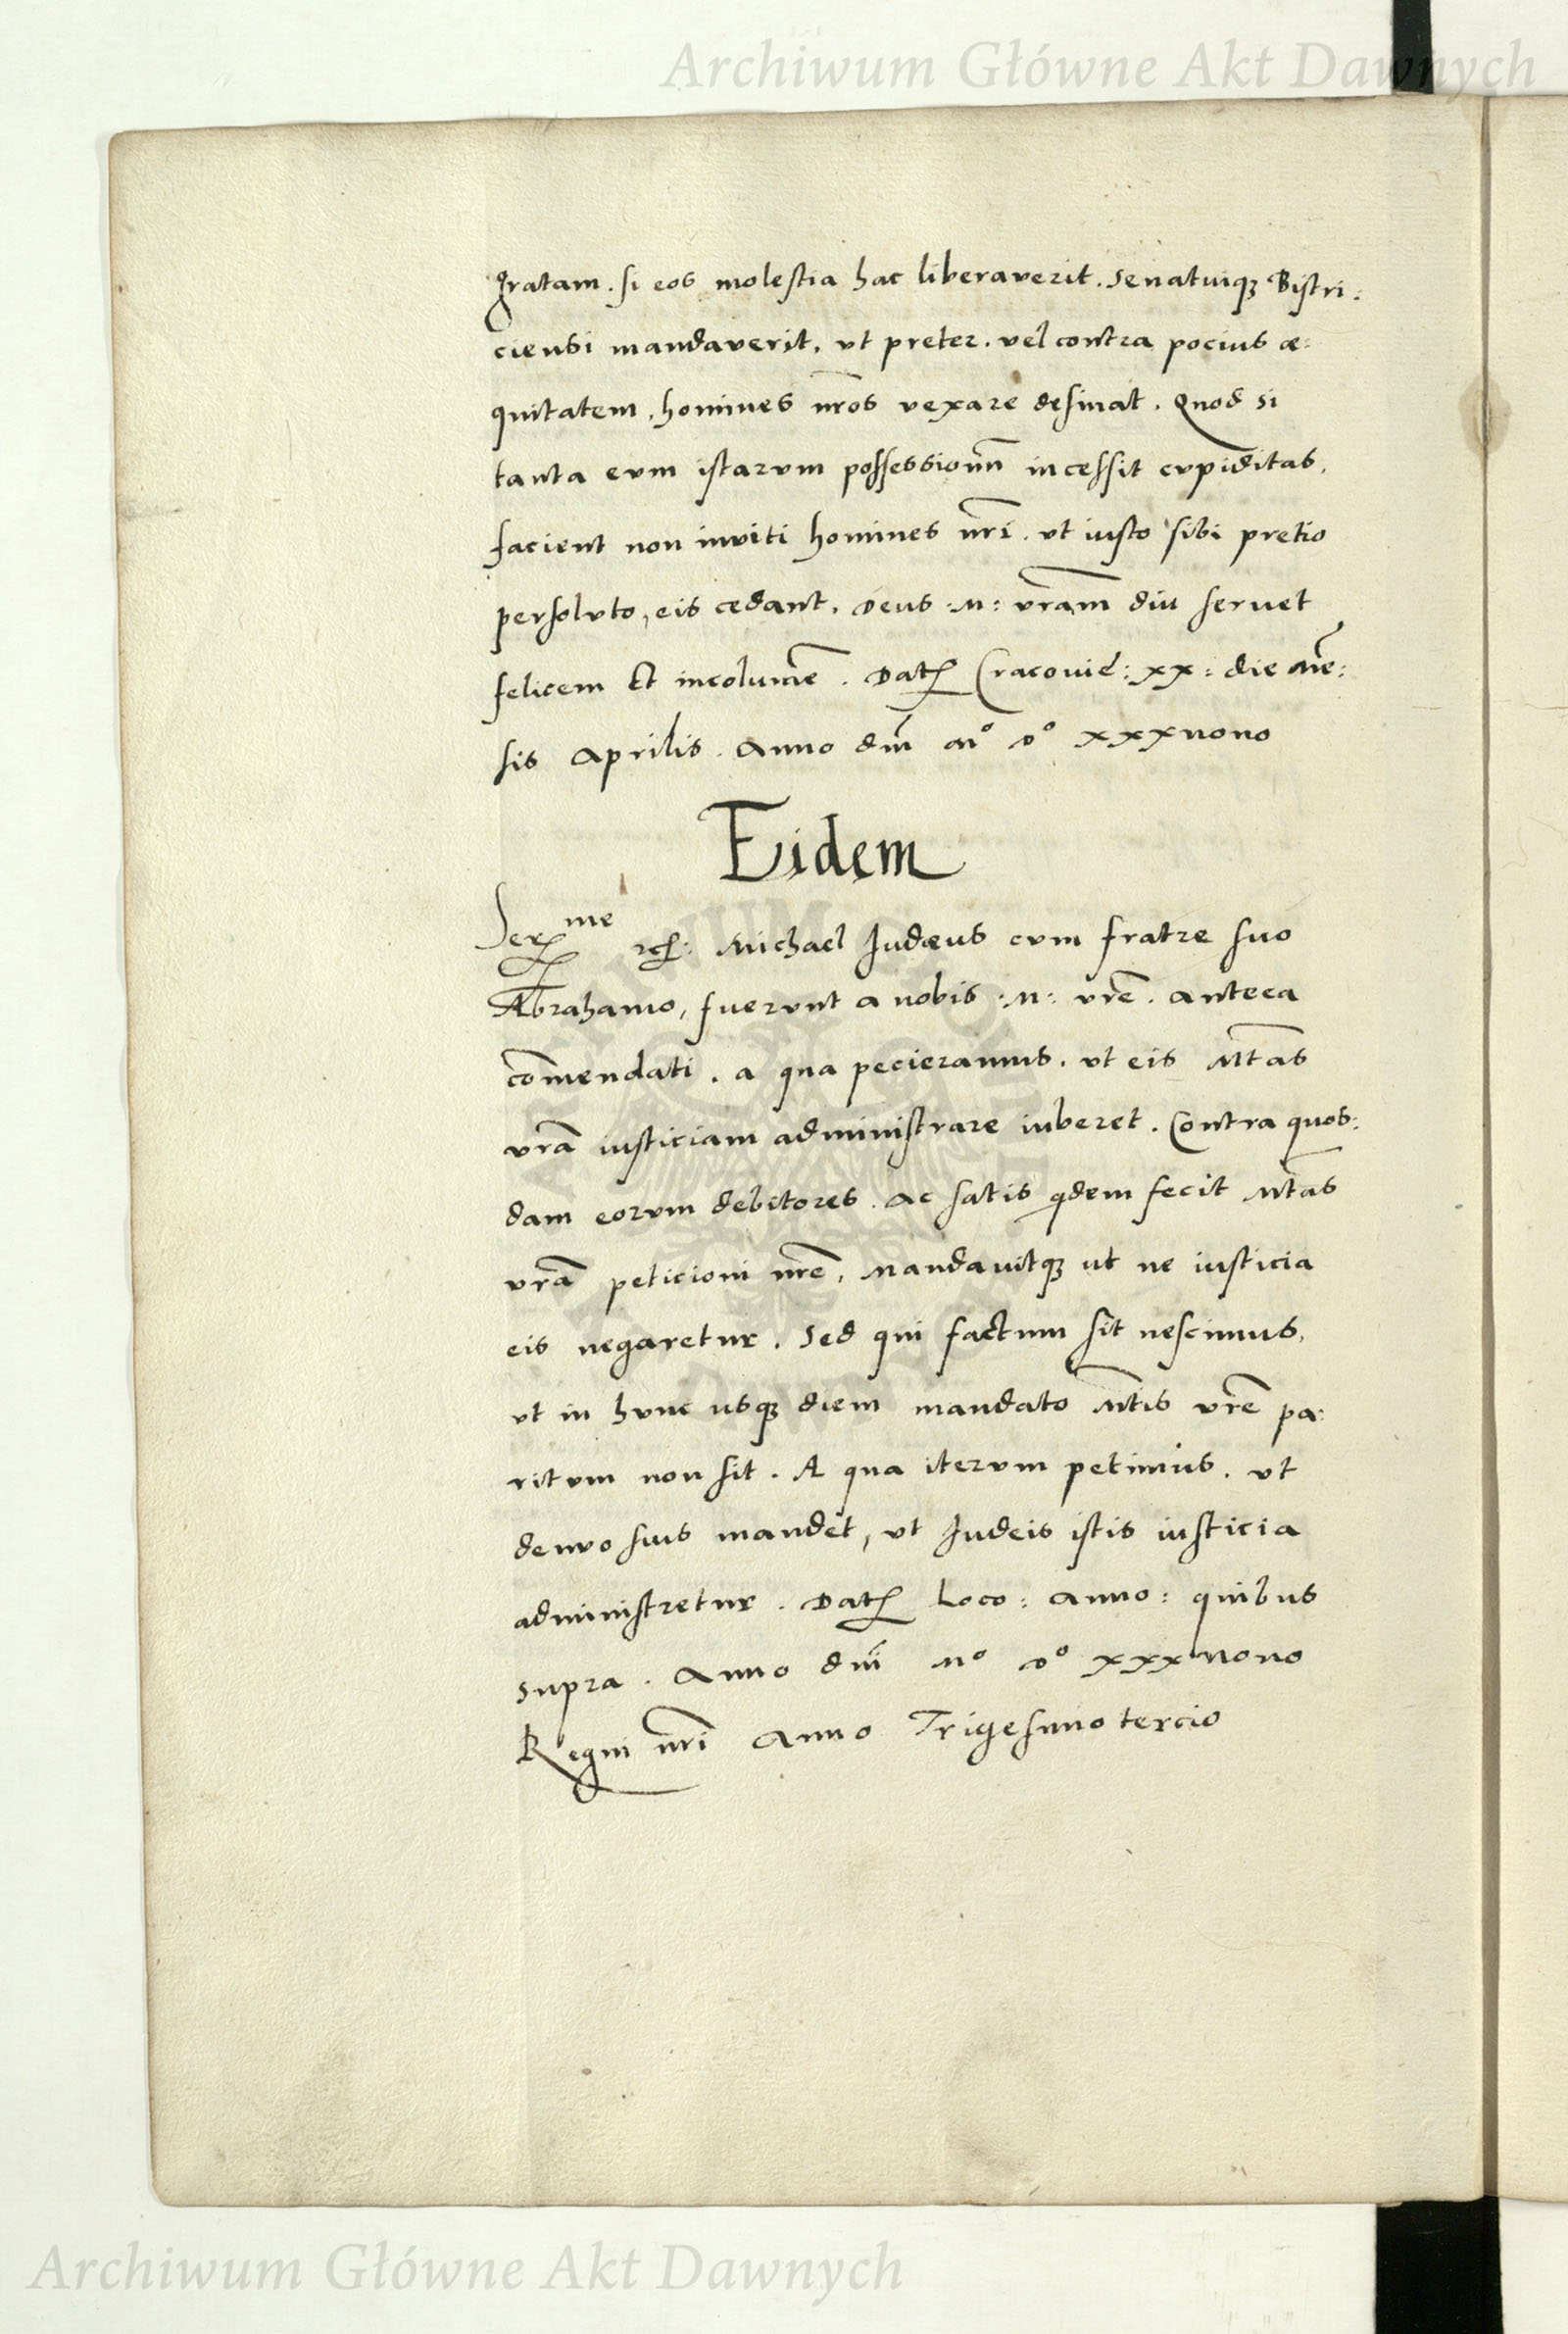 Archiwum Główne Akt Dawnych
gratam. si eos molestia hac liberaverit. Senatuiqȝ Bistri:
ciensi mandaverit, vt preter. vel contra pocius æ:
quitatem, homines nr̃os vexare desinat. Quod si
tanta evm istarvm possessionũ incessit cvpiditas,
facient non inviti homines nr̃i. vt iusto sibi pretio
persolvto, eis cedant. Deus :M: vr̃am diu servet
felicem Et incolumẽ. Datꝫ Cracovie: xx: die Mẽ:
sis Aprilis. Anno dnĩ Mº vº xxxnono
Eidem
Serme Michael Iudæus cvm fratre suo
Abrahamo, fuervnt a nobis :M: vrẽ. anteea
cõmendati. a qua pecieramus. vt eis Mt̃as
vrã iusticiam administrare iuberet. Contra quos:
dam eorvm debitores. ac satis qdem fecit Mt̃as
vrã peticioni nrẽ, Mandavitqȝ ut ne iusticia
eis negaretur. Sed qui factum sit nescimus,
vt in hvnc usqȝ diem mandato Mt̃is vrẽ pa:
ritvm non sit. A qua itervm petimus. vt
denvo suis mandet, vt Iudeis istis iusticia
administretur. Datꝫ Loco: Anno: quibus
supra. Anno dnĩ Mº vº xxxnono
Regni nr̃i Anno Trigesimo tercio
Archiwum Główne Akt Dawnych